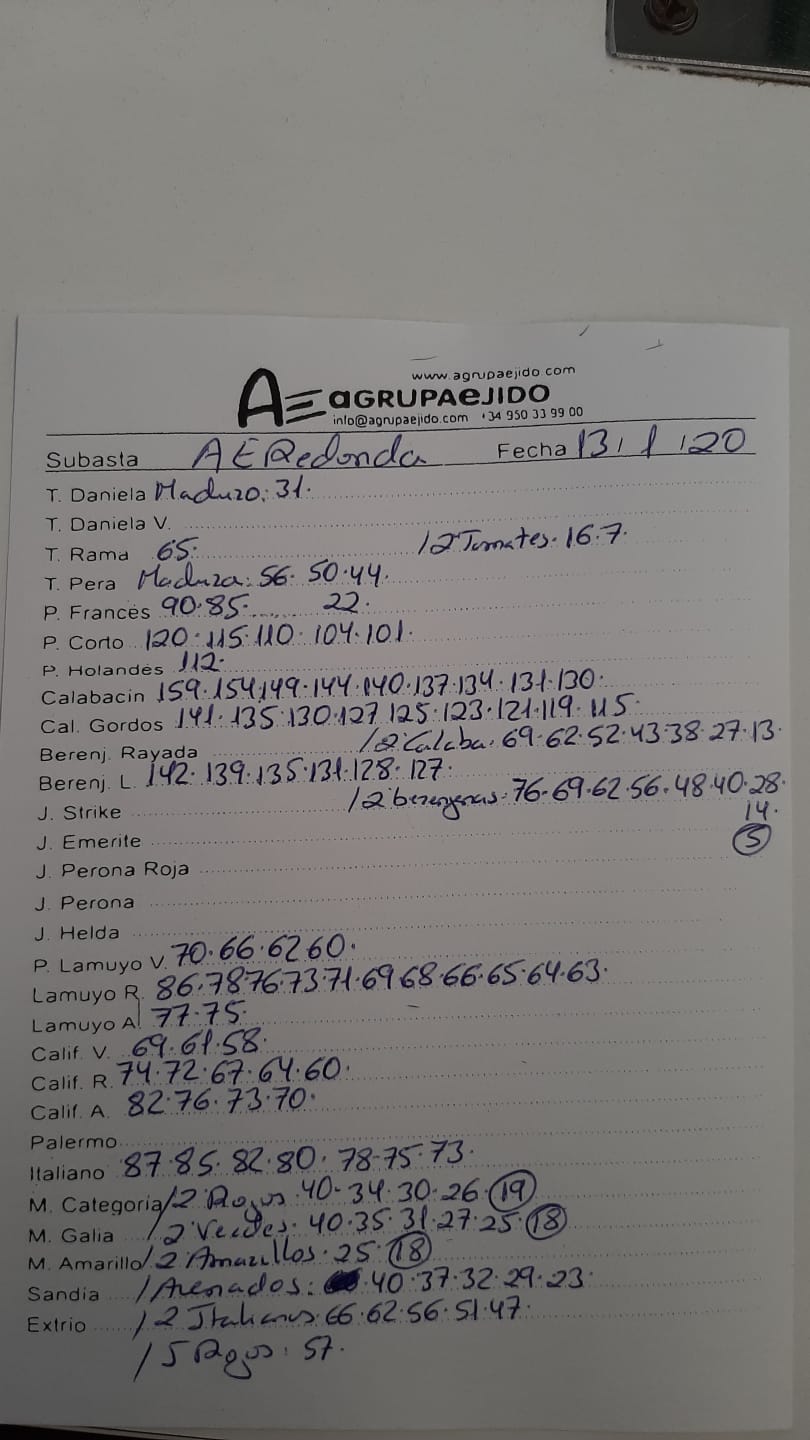 www.agrupaejido.com
AE aGRUPAeJIDO
info@agrupaejido.com +34 950 33 99 00
Subasta AERedonda Fecha 13/1/20
T. Daniela Maduro: 31.
T. Daniela V.
T. Rama 65. /2 Tomates. 16.7.
T. Pera Madura: 56. 50.44.
P. Francés 90.85. 22.
P. Corto 120.115.110.104.101.
P. Holandés 112.
Calabacín 159.154.149.144.140.137.134.131.130.
Cal. Gordos 141.135.130.127.125.123.121.119.115.
Berenj. Rayada /2 Calaba. 69.62.52.43.38.27.13.
Berenj. L. 142.139.135.131.128.127.
J. Strike /2 berengenas. 76.69.62.56.48.40.28.
14.
J. Emerite 5
J. Perona Roja
J. Perona
J. Helda
P. Lamuyo V. 70.66.62.60.
Lamuyo R. 86.78.76.73.71.69.68.66.65.64.63.
Lamuyo A. 77.75.
Calif. V. 69.61.58.
Calif. R. 74.72.67.64.60.
Calif. A. 82.76.73.70.
Palermo
Italiano 87.85.82.80.78.75.73.
M. Categoria /2 Rojos. 40.34.30.26.19
M. Galia /2 Verdes. 40.35.31.27.25.18
M. Amarillo /2 Amarillos. 25.18
Sandía /Arenados: 40.37.32.29.23.
Extrio /2 Italianos: 66.62.56.51.47.
/5 Rojos: 57.